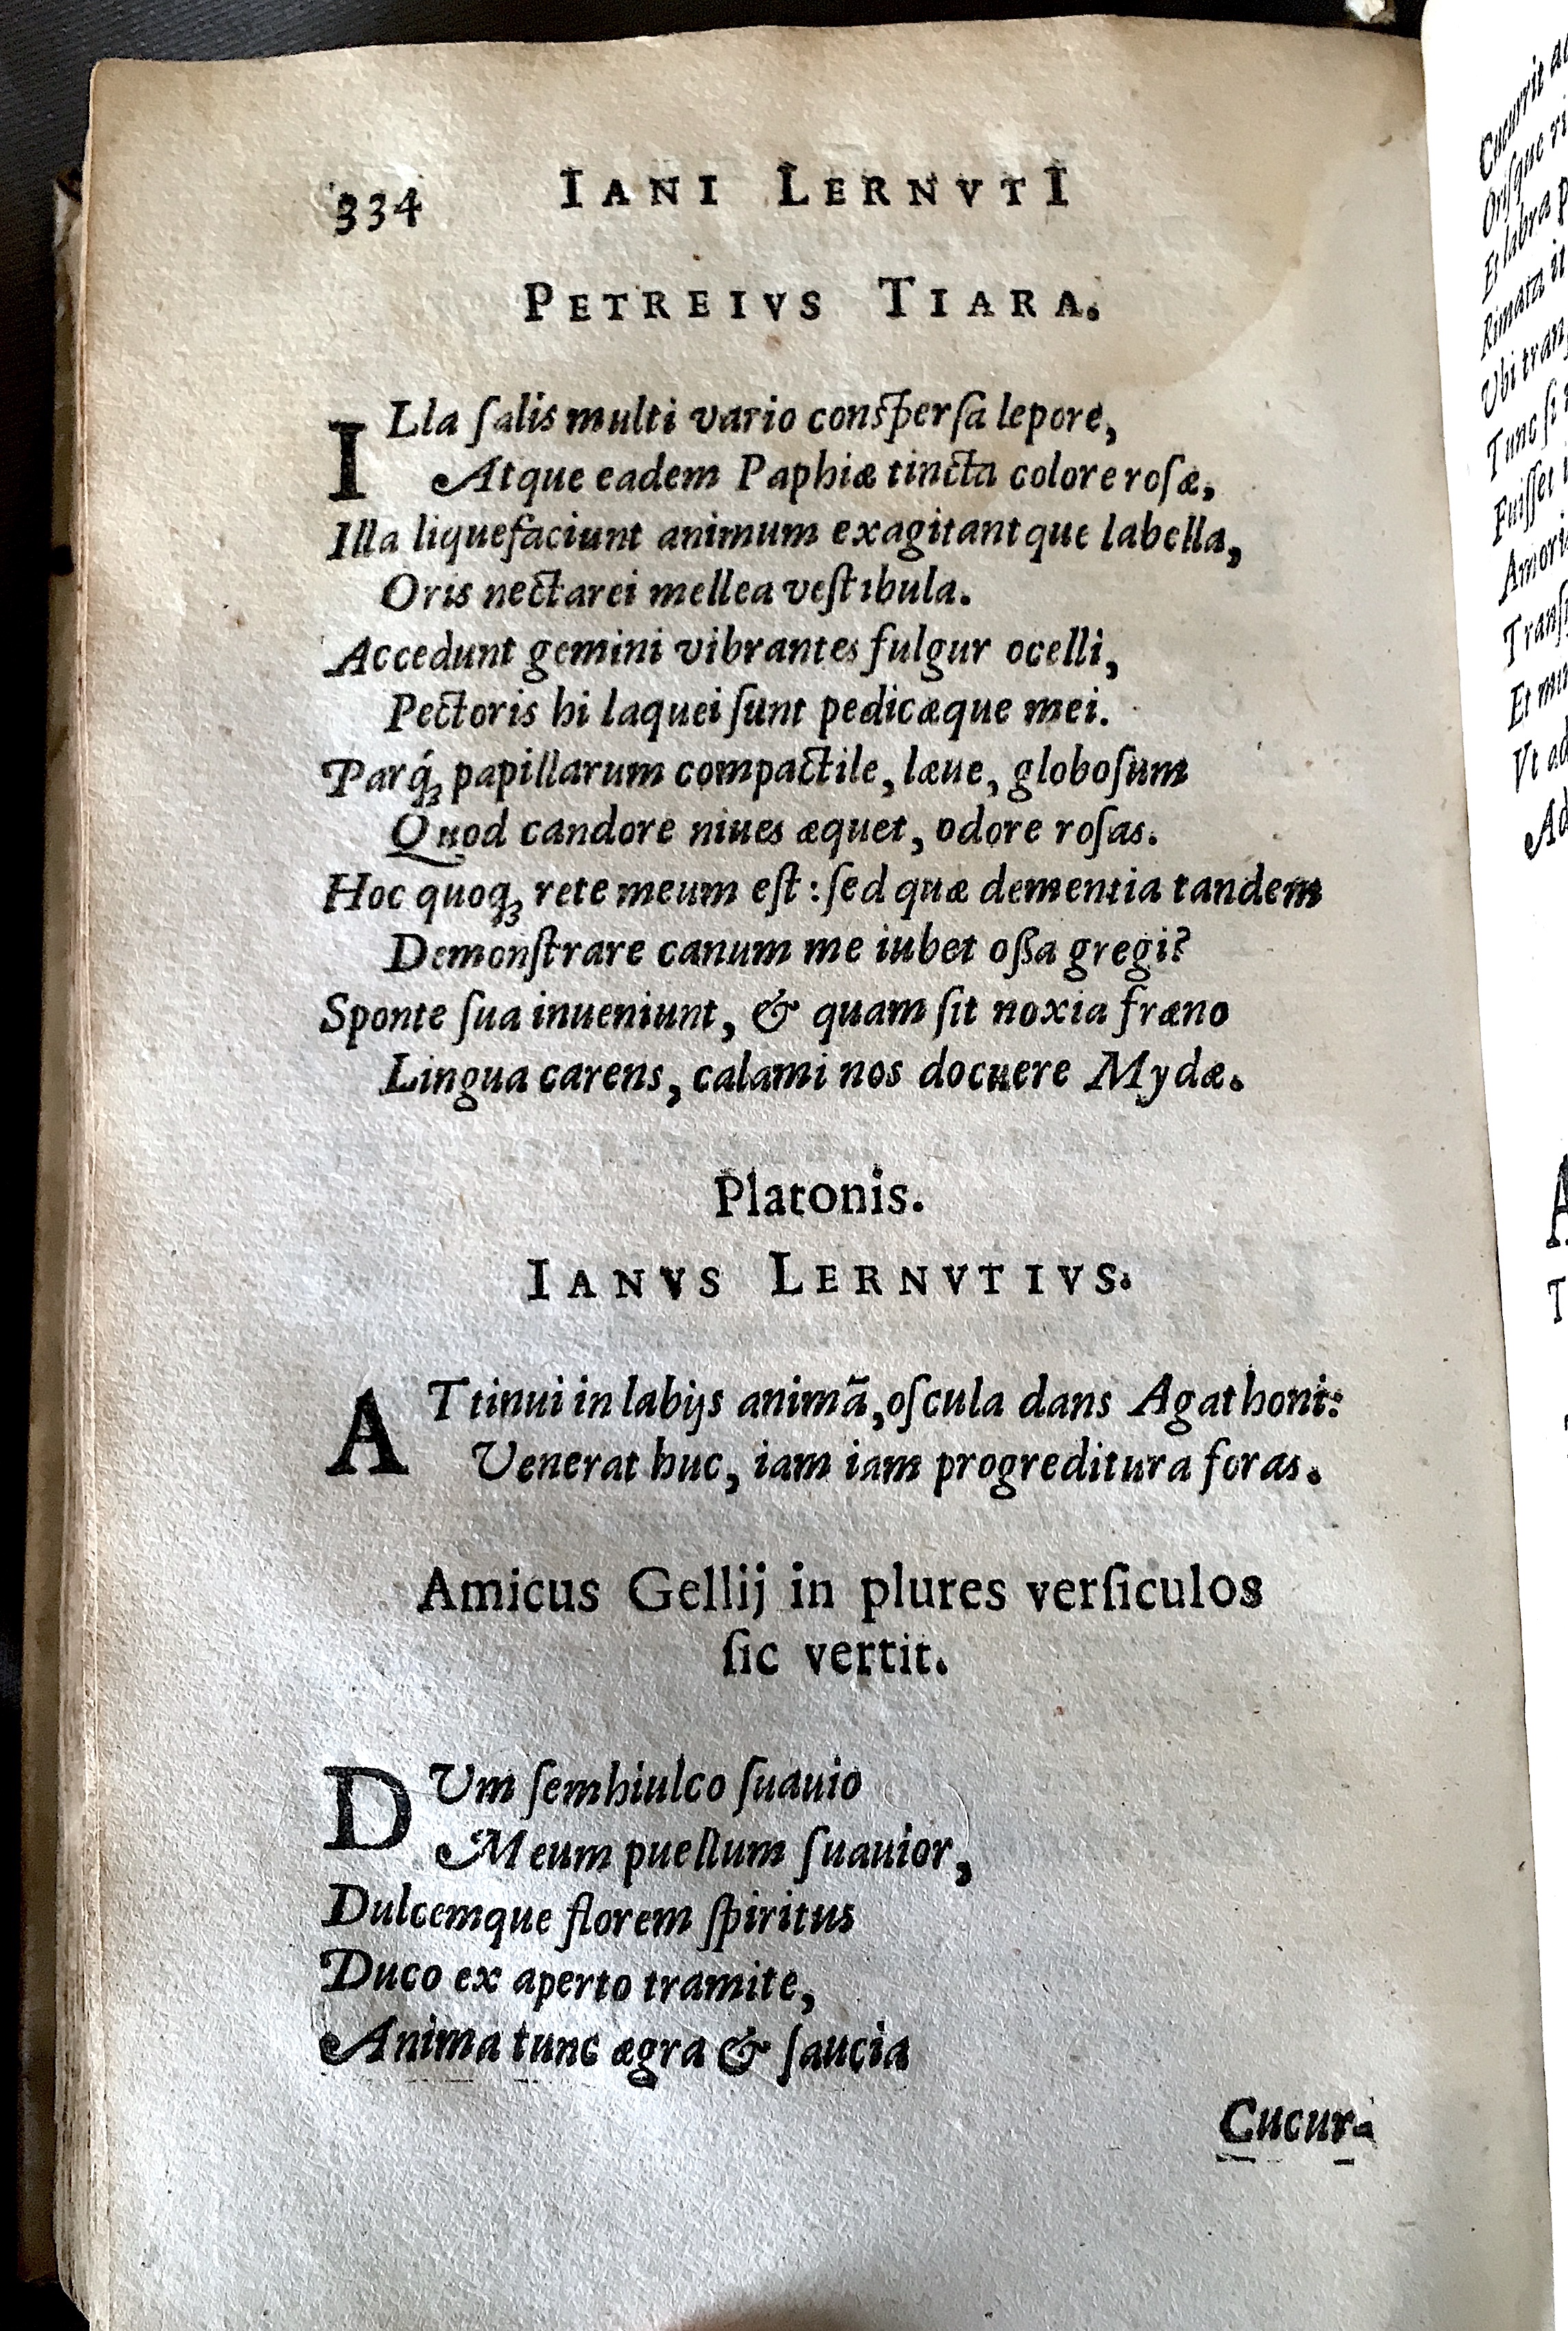 334 IANI LERNVTI
PETREIVS TIARA.
ILla ſalis multi vario conſperſa lepore,
Atque eadem Paphiæ tincta colore roſæ,
Illa liquefaciunt animum exagitantque labella,
Oris nectarei mellea veſtibula.
Accedunt gemini vibrantes fulgur ocelli,
Pectoris hi laquei ſunt pedicæque mei.
Parq́ꝫ papillarum compactile, læue, globoſum
Quod candore niues æquet, odore roſas.
Hoc quoqꝫ rete meum eſt: ſed quæ dementia tandem
Demonſtrare canum me iubet oſsa gregi?
Sponte ſua inueniunt, & quam ſit noxia fræno
Lingua carens, calami nos docuere Mydæ.
Platonis.
IANVS LERNVTIVS.
ATtinui in labijs animā, oſcula dans Agathoni:
Venerat huc, iam iam progreditura foras.
Amicus Gellij in plures verſiculos
ſic vertit.
DUm ſemhiulco ſuauio
Meum puellum ſuauior,
Dulcemque florem ſpiritus
Duco ex aperto tramite,
Anima tunc ægra & ſaucia
Cucur-
Cucurrit
Et labra
Rimata
Tunc ſi
Fuiſſet